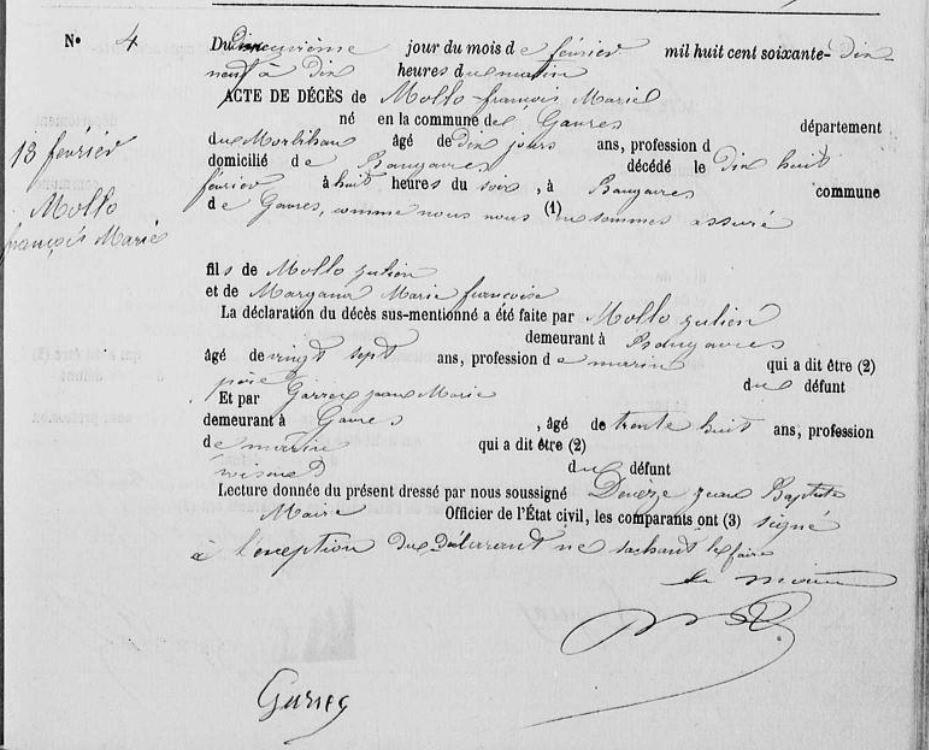 N° 4
Du Dix neuvième jour du mois de février mil huit cent soixante-Dix
neuf à Dix heures du matin
ACTE DE DÉCÈS de Mollo françois Marie
né en la commune de Gavres département
du Morbihan âgé de Dix jours ans, profession d
domicilié de Bangavres décédé le Dix huit
février à huit heures du soir, à Bangavres commune
de Gavres, comme nous nous (1) en sommes assuré
18 février
Mollo
françois Marie
fils de Mollo julien
et de Margana Marie françoise
La déclaration du décès sus-mentionné a été faite par Mollo julien
demeurant à Bangavres
âgé de vingt sept ans, profession de marin qui a dit être (2)
père du défunt
Et par jean Marie
demeurant à Gavres, âgé de trente huit ans, profession
de marin qui a dit être (2)
voisin du défunt
Lecture donnée du présent dressé par nous soussigné Devèze jean Baptiste
Maire Officier de l'État civil, les comparants ont (3) signé
à l'exception du Déclarant ne sachant le faire
Le maire